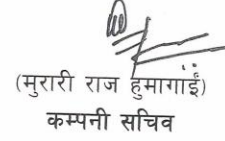 (मुरारी राज हुमागाईं)
कम्पनी सचिव